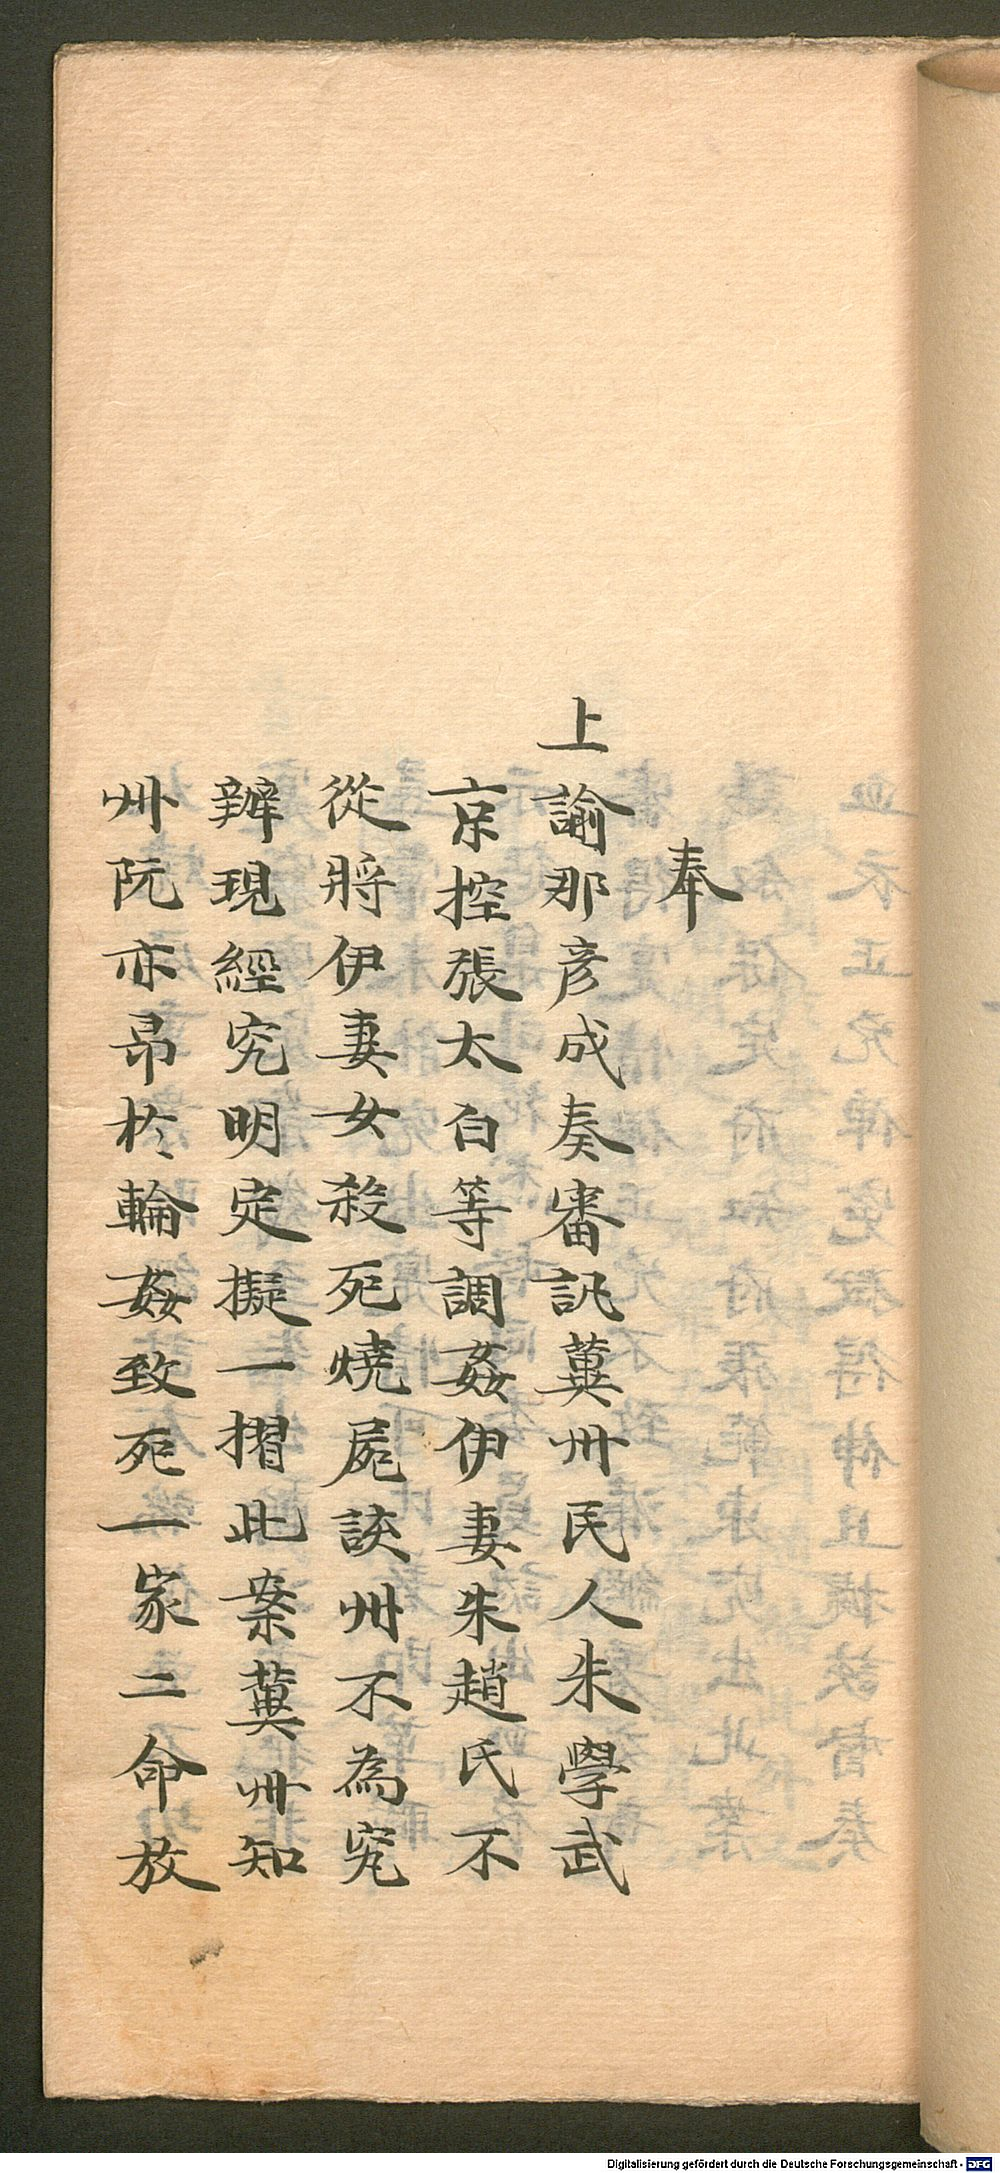 奉
上諭那彥成奏審訊冀州民人朱學武
京控張太白等調姦伊妻朱趙氏不
從將伊妻女殺死燒屍該州不為究
辨現經究明定擬一摺此案冀州知
州阮亦昂於輪姦致死一家二命放
Digitalisierung gefördert durch die Deutsche Forschungsgemeinschaft - DFG